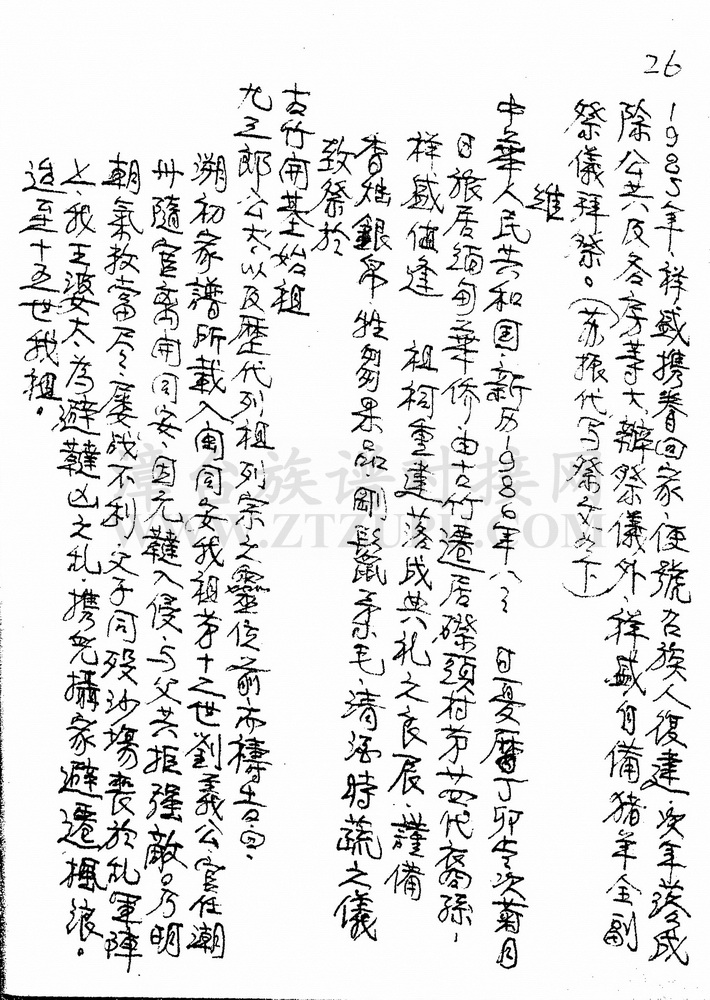 26
1985年，祥盛携眷回家，便號召族人復建，次年落成
除公共及各房等大辦祭儀外，祥盛自備猪羊全副
祭儀拜祭。（苏振代写祭文如下）
維
中華人民共和国，新历1986年八月 日夏曆丁卯岁次菊月
日旅居缅甸華侨，由古竹遷居磜頭村第廿四代裔孫，
祥盛值逢 祖祠重建落成典礼之良辰，謹備
香烛銀帛牲芻果品，剛鬣柔毛，清酒時蔬之儀
致祭於
古竹開基始祖
九三郎公太以及歷代列祖列宗之靈位前而禱告曰：
溯初家譜所載入閩同安我祖第十之世劉義公官任潮
州隨官离開同安，因元韃入侵，与父共拒强敵，乃明
朝氣数當尽，屡战不利，父子同殁沙場喪於乱軍陣
上，我王婆太，為避韃凶之乱，携児攝家避遷楓浪。
迨至十五世我祖。
漳台族谱对接网
WWW.ZTZUPU.COM